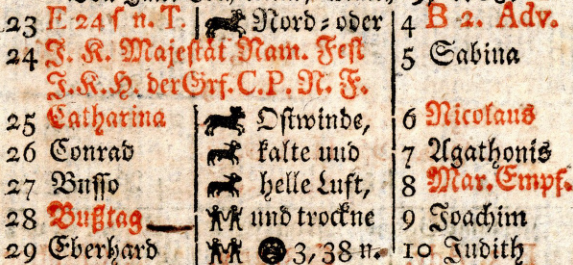 23 E 24 ſ n. T. Nord- oder 4 B 2. Adv.
24 J. K. Majeſtät Nam. Feſt 5 Sabina
J. K. H. der Grf. C. P. N. F.
25 Catharina Oſtwinde, 6 Nicolaus
26 Conrad kalte und 7 Agathonis
27 Buſſo helle Luft, 8 Mar. Empf.
28 Bußtag und trockne 9 Joachim
29 Eberhard 3, 38 n. 10 Judith